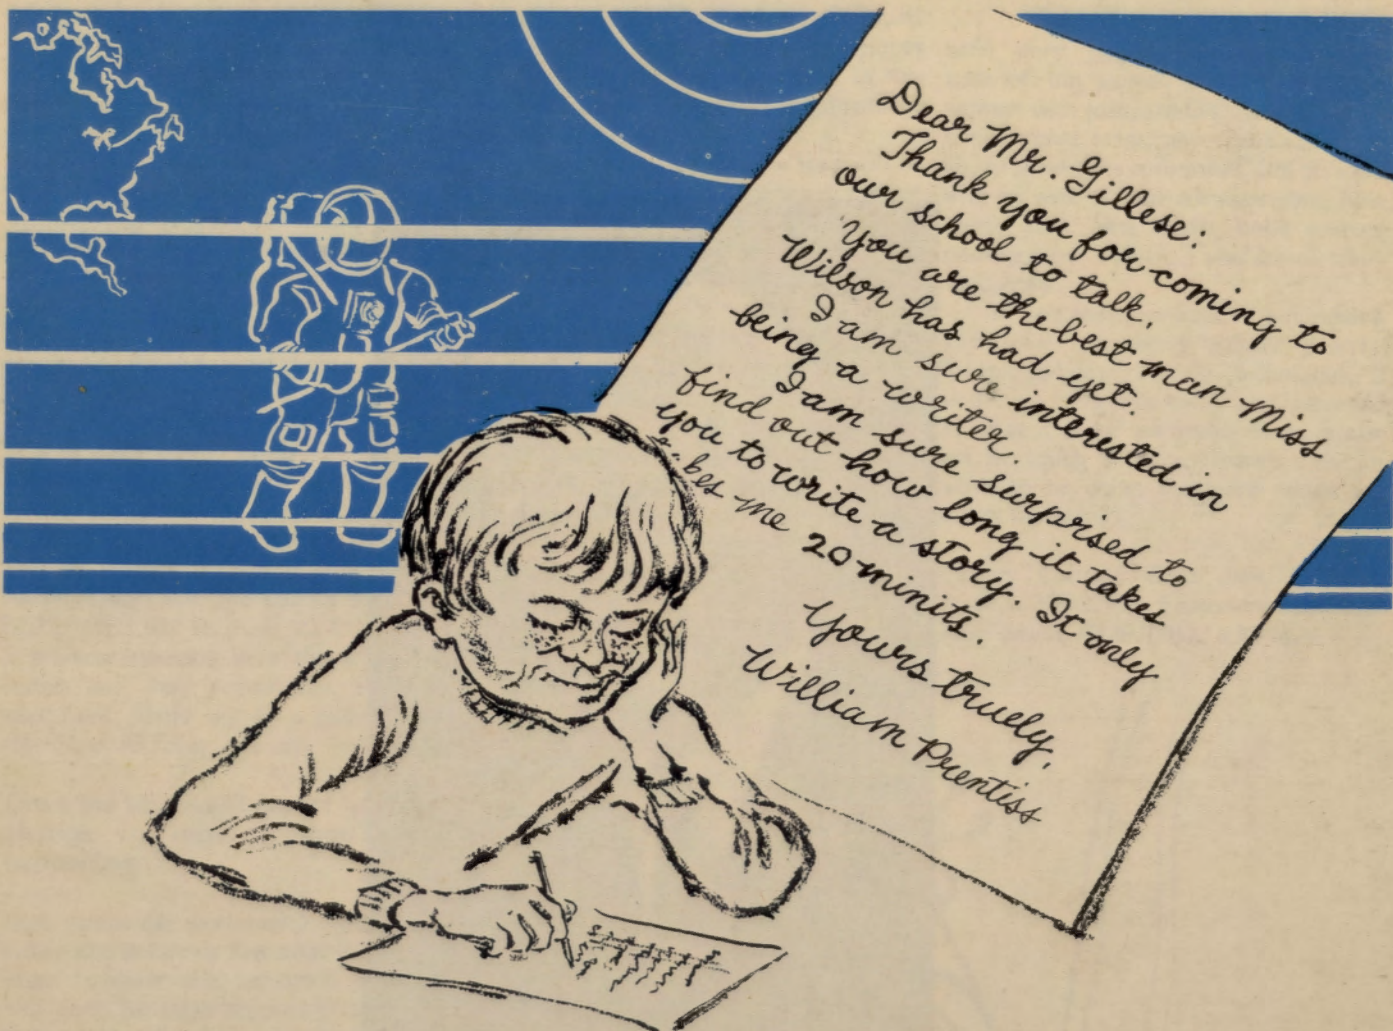 Dear Mr. Gillese:
Thank you for coming to
our school to talk.
You are the best man Miss
Wilson has had yet.
I am sure interested in
being a writer.
I am sure surprised to
find out how long it takes
you to write a story. It only
takes me 20 minits.
Yours truely,
William Prentiss